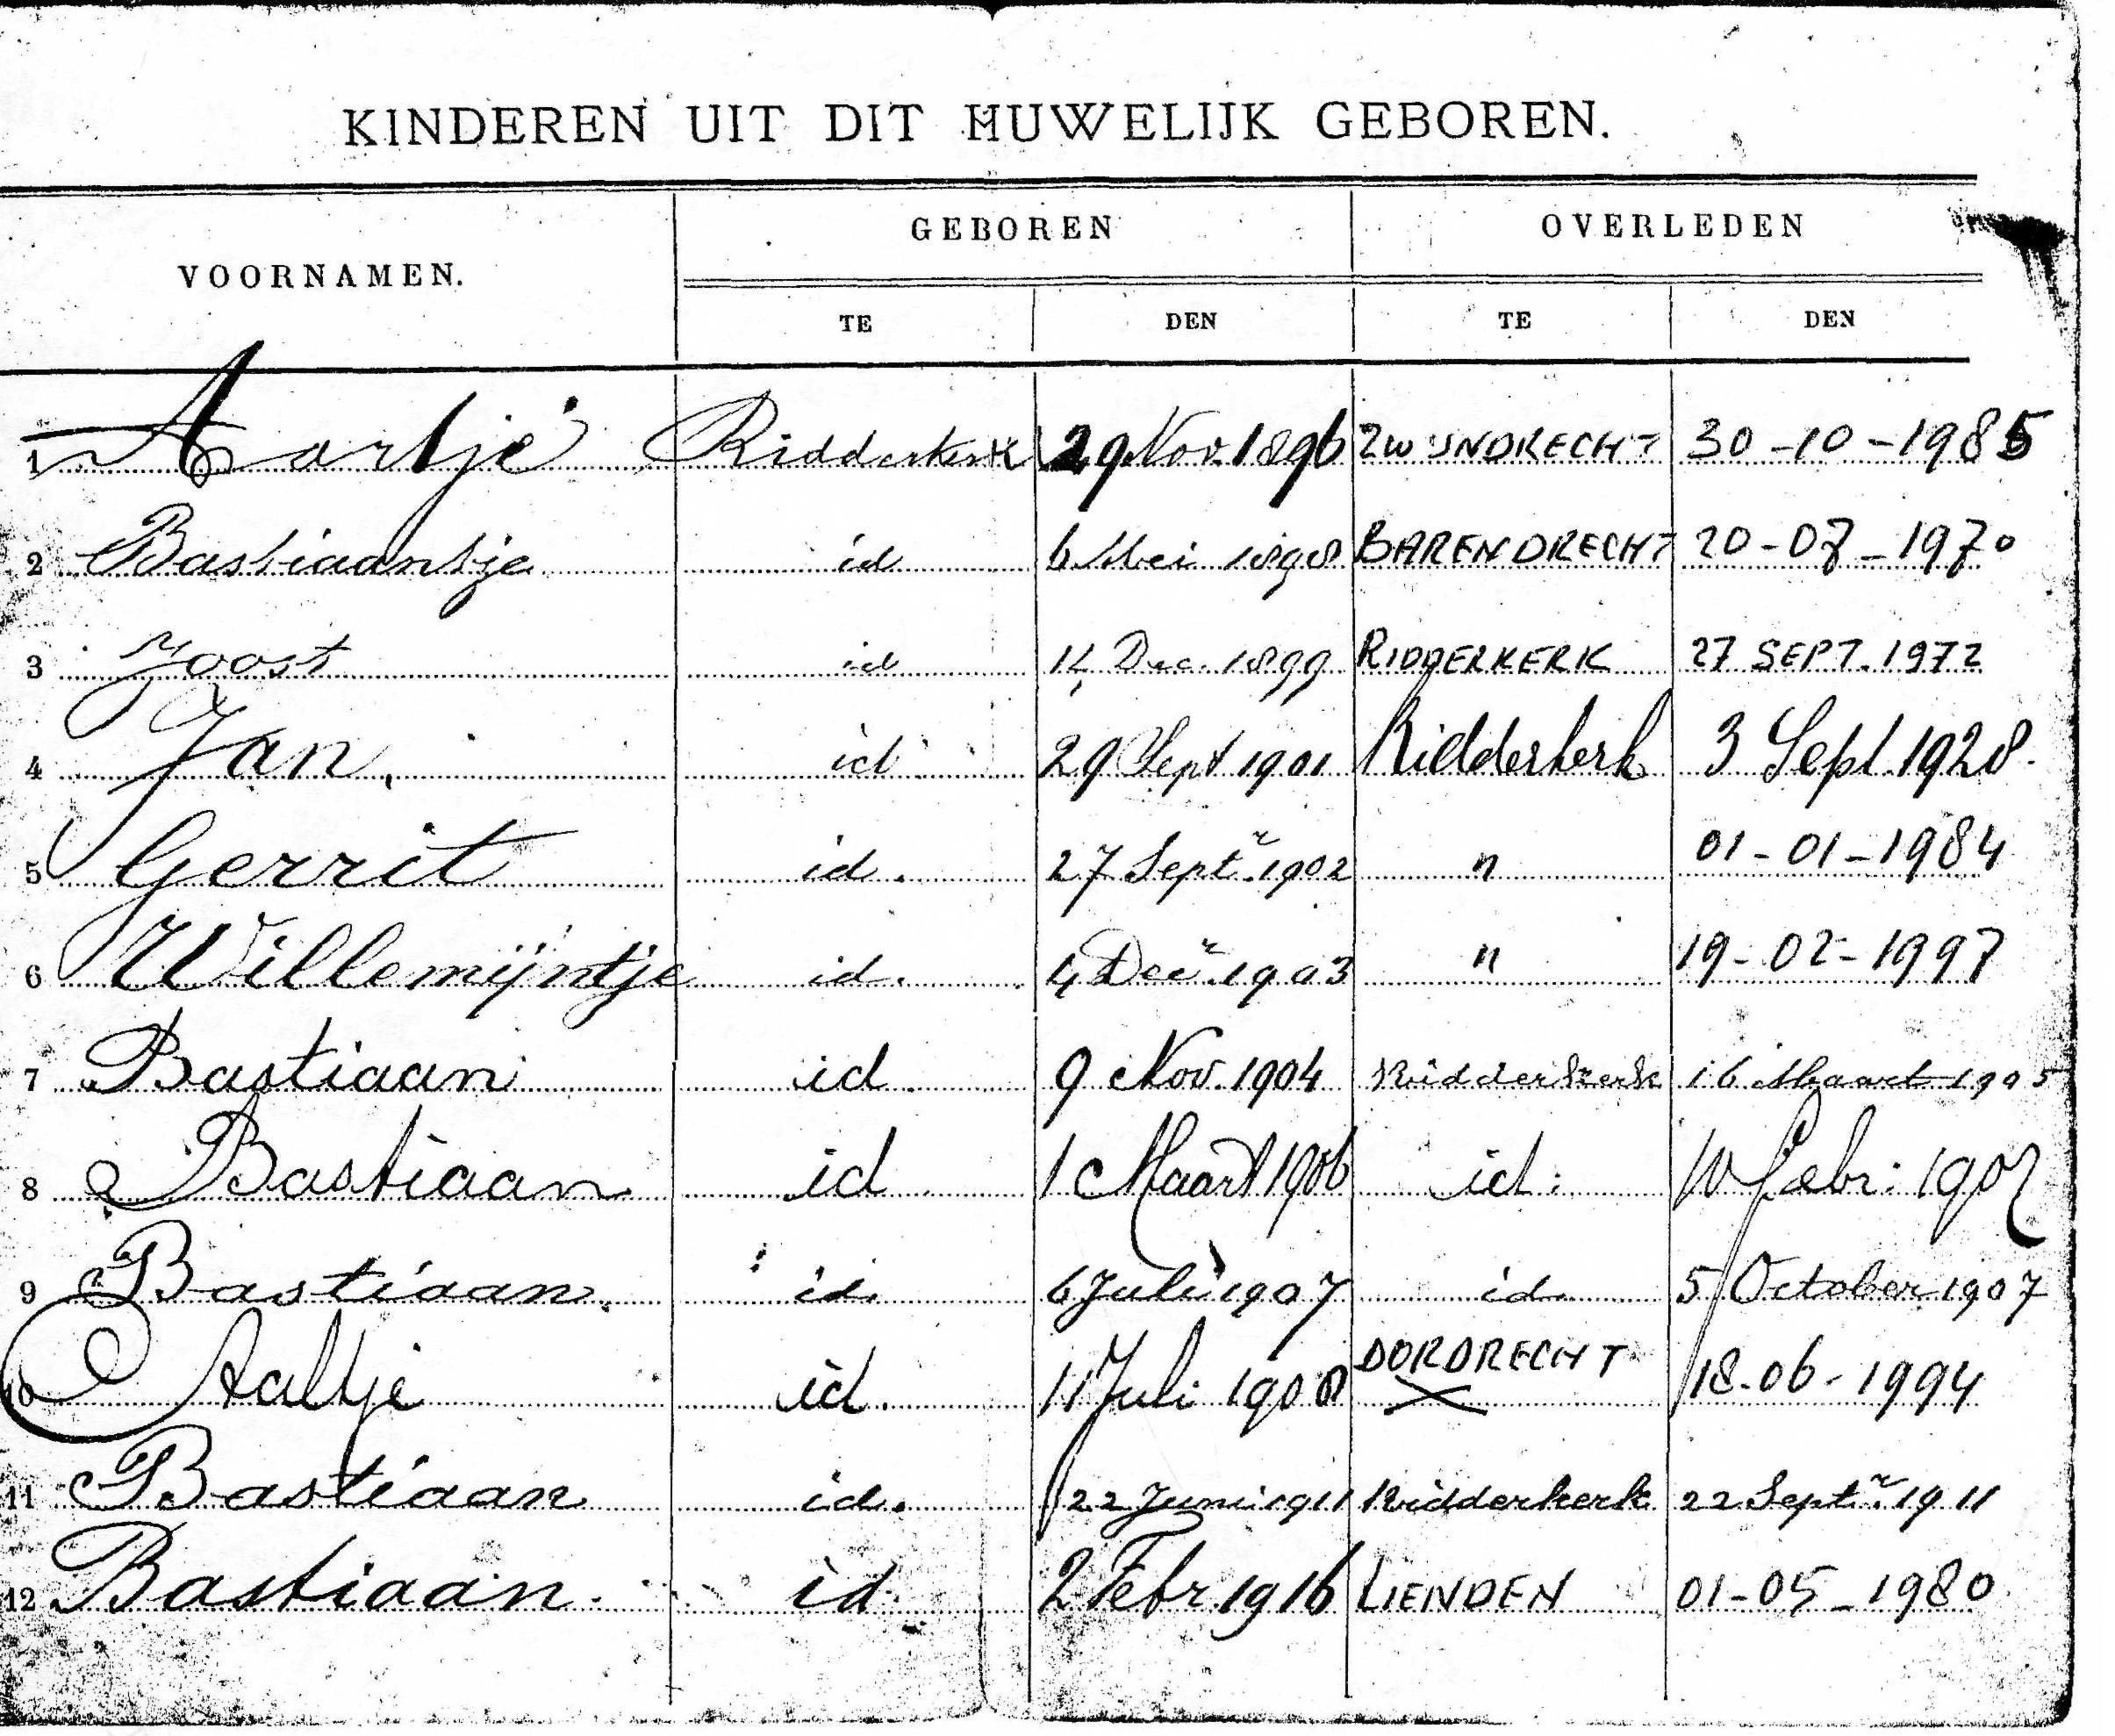 KINDEREN UIT DIT HUWELIJK GEBOREN.
VOORNAMEN. GEBOREN OVERLEDEN
TE DEN TE DEN
1 Aartje Ridderkerk 29 Nov. 1896 ZWIJNDRECHT 30-10-1985
2 Bastiaantje id 6 Mei 1898 BARENDRECHT 20-07-1970
3 Joost id 14 Dec. 1899 RIDDERKERK 27 SEPT. 1972
4 Jan. id 29 Sept 1901 Ridderkerk 3 Sept. 1928.
5 Gerrit id. 27 Septr. 1902 " 01-01-1984
6 Willemijntje id. 4 Decr. 1903 " 19-02-1997
7 Bastiaan id. 9 Nov. 1904 Ridderkerk 16 Maart 1905
8 Bastiaan id 1 Maart 1906 id. 10 Febr: 1907
9 Bastiaan. id. 6 Juli 1907 id. 5 October 1907
10 Aaltje id. 11 Juli 1908 DORDRECHT 18-06-1994
11 Bastiaan id. 22 Juni 1911 Ridderkerk 22 Septr. 1911
12 Bastiaan. id. 2 Febr. 1916 LIENDEN 01-05-1980